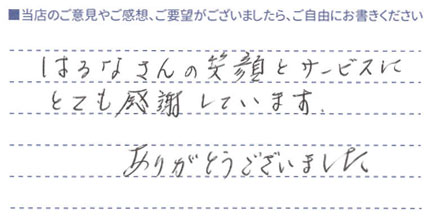 ■当店のご意見やご感想、ご要望がございましたら、ご自由にお書きください
はるなさんの笑顔とサービスに
とても感謝しています。
ありがとうございました